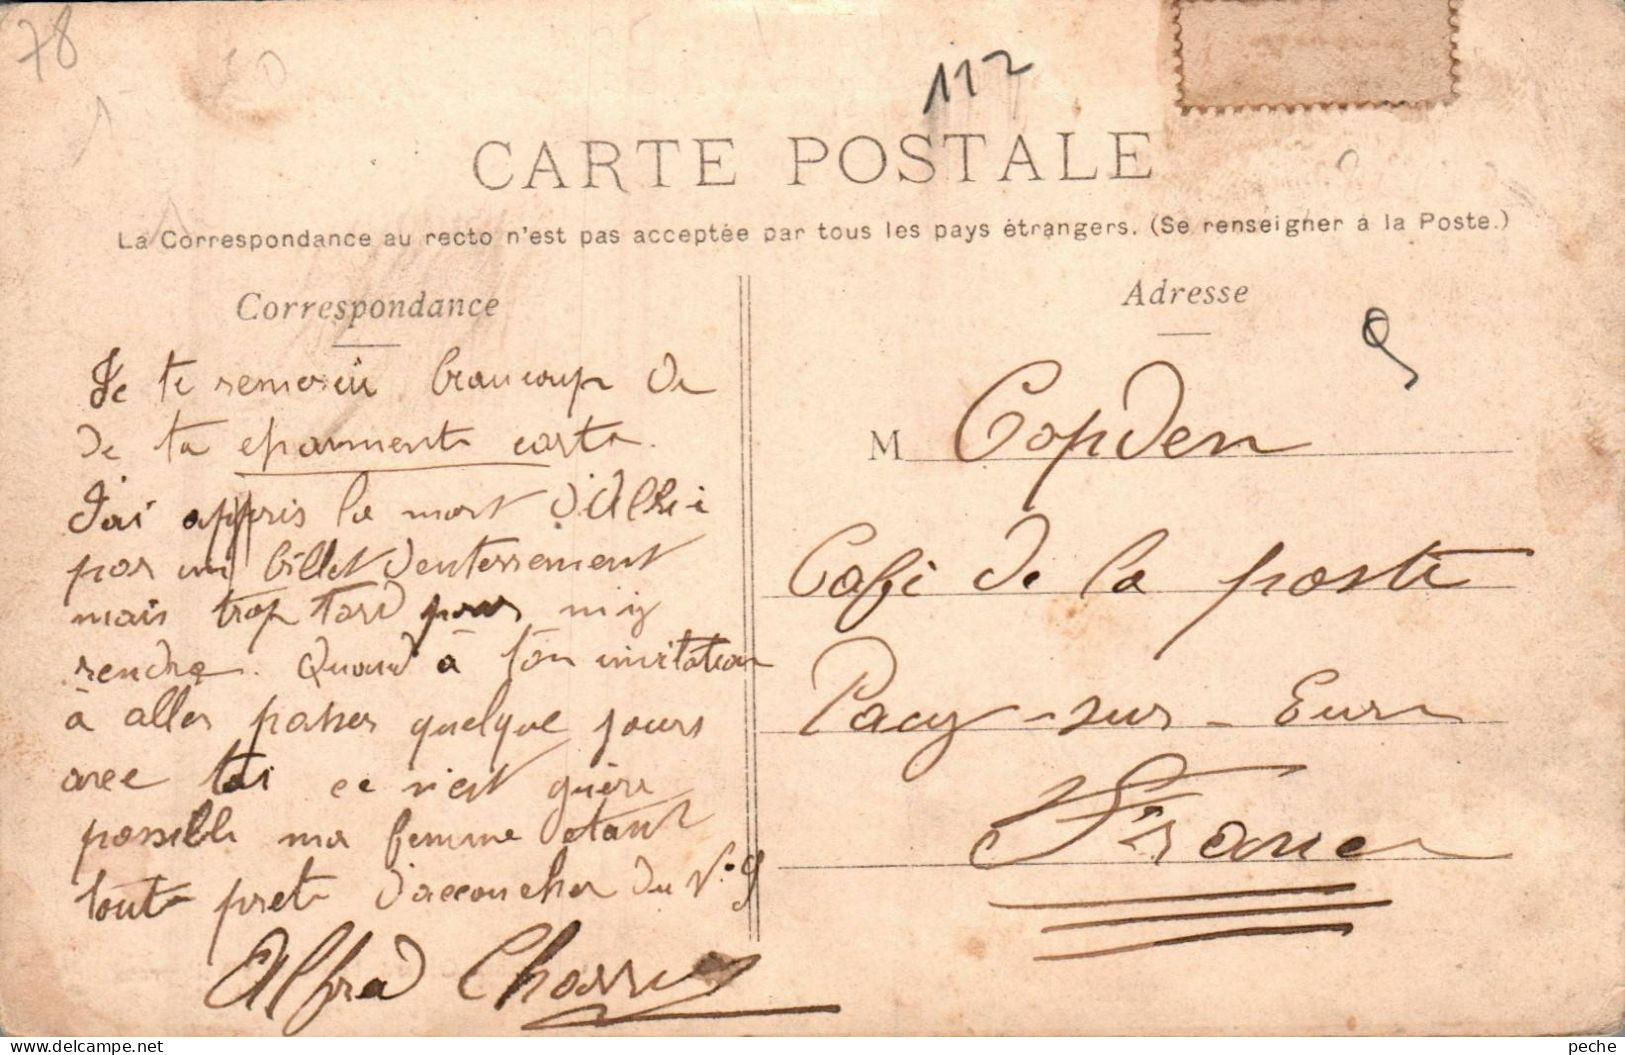 78
112
CARTE POSTALE
La Correspondance au recto n'est pas acceptée par tous les pays étrangers. (Se renseigner à la Poste.)
Correspondance
Je te remercie beaucoup de
de ta epannente carte.
J'ai appris la mort d'Albi
par un billet d'enterrement
mais trop tard pour m'y
rendre. Quand à ton invitation
à aller passer quelque jours
avec toi ce n'est guère
possible ma femme étant
toute prete d'accoucher du N.º 9
Alfred
Adresse
9
M Copden
Café de la poste
Pacy-sur-Eure
France
© delcampe.net
peche